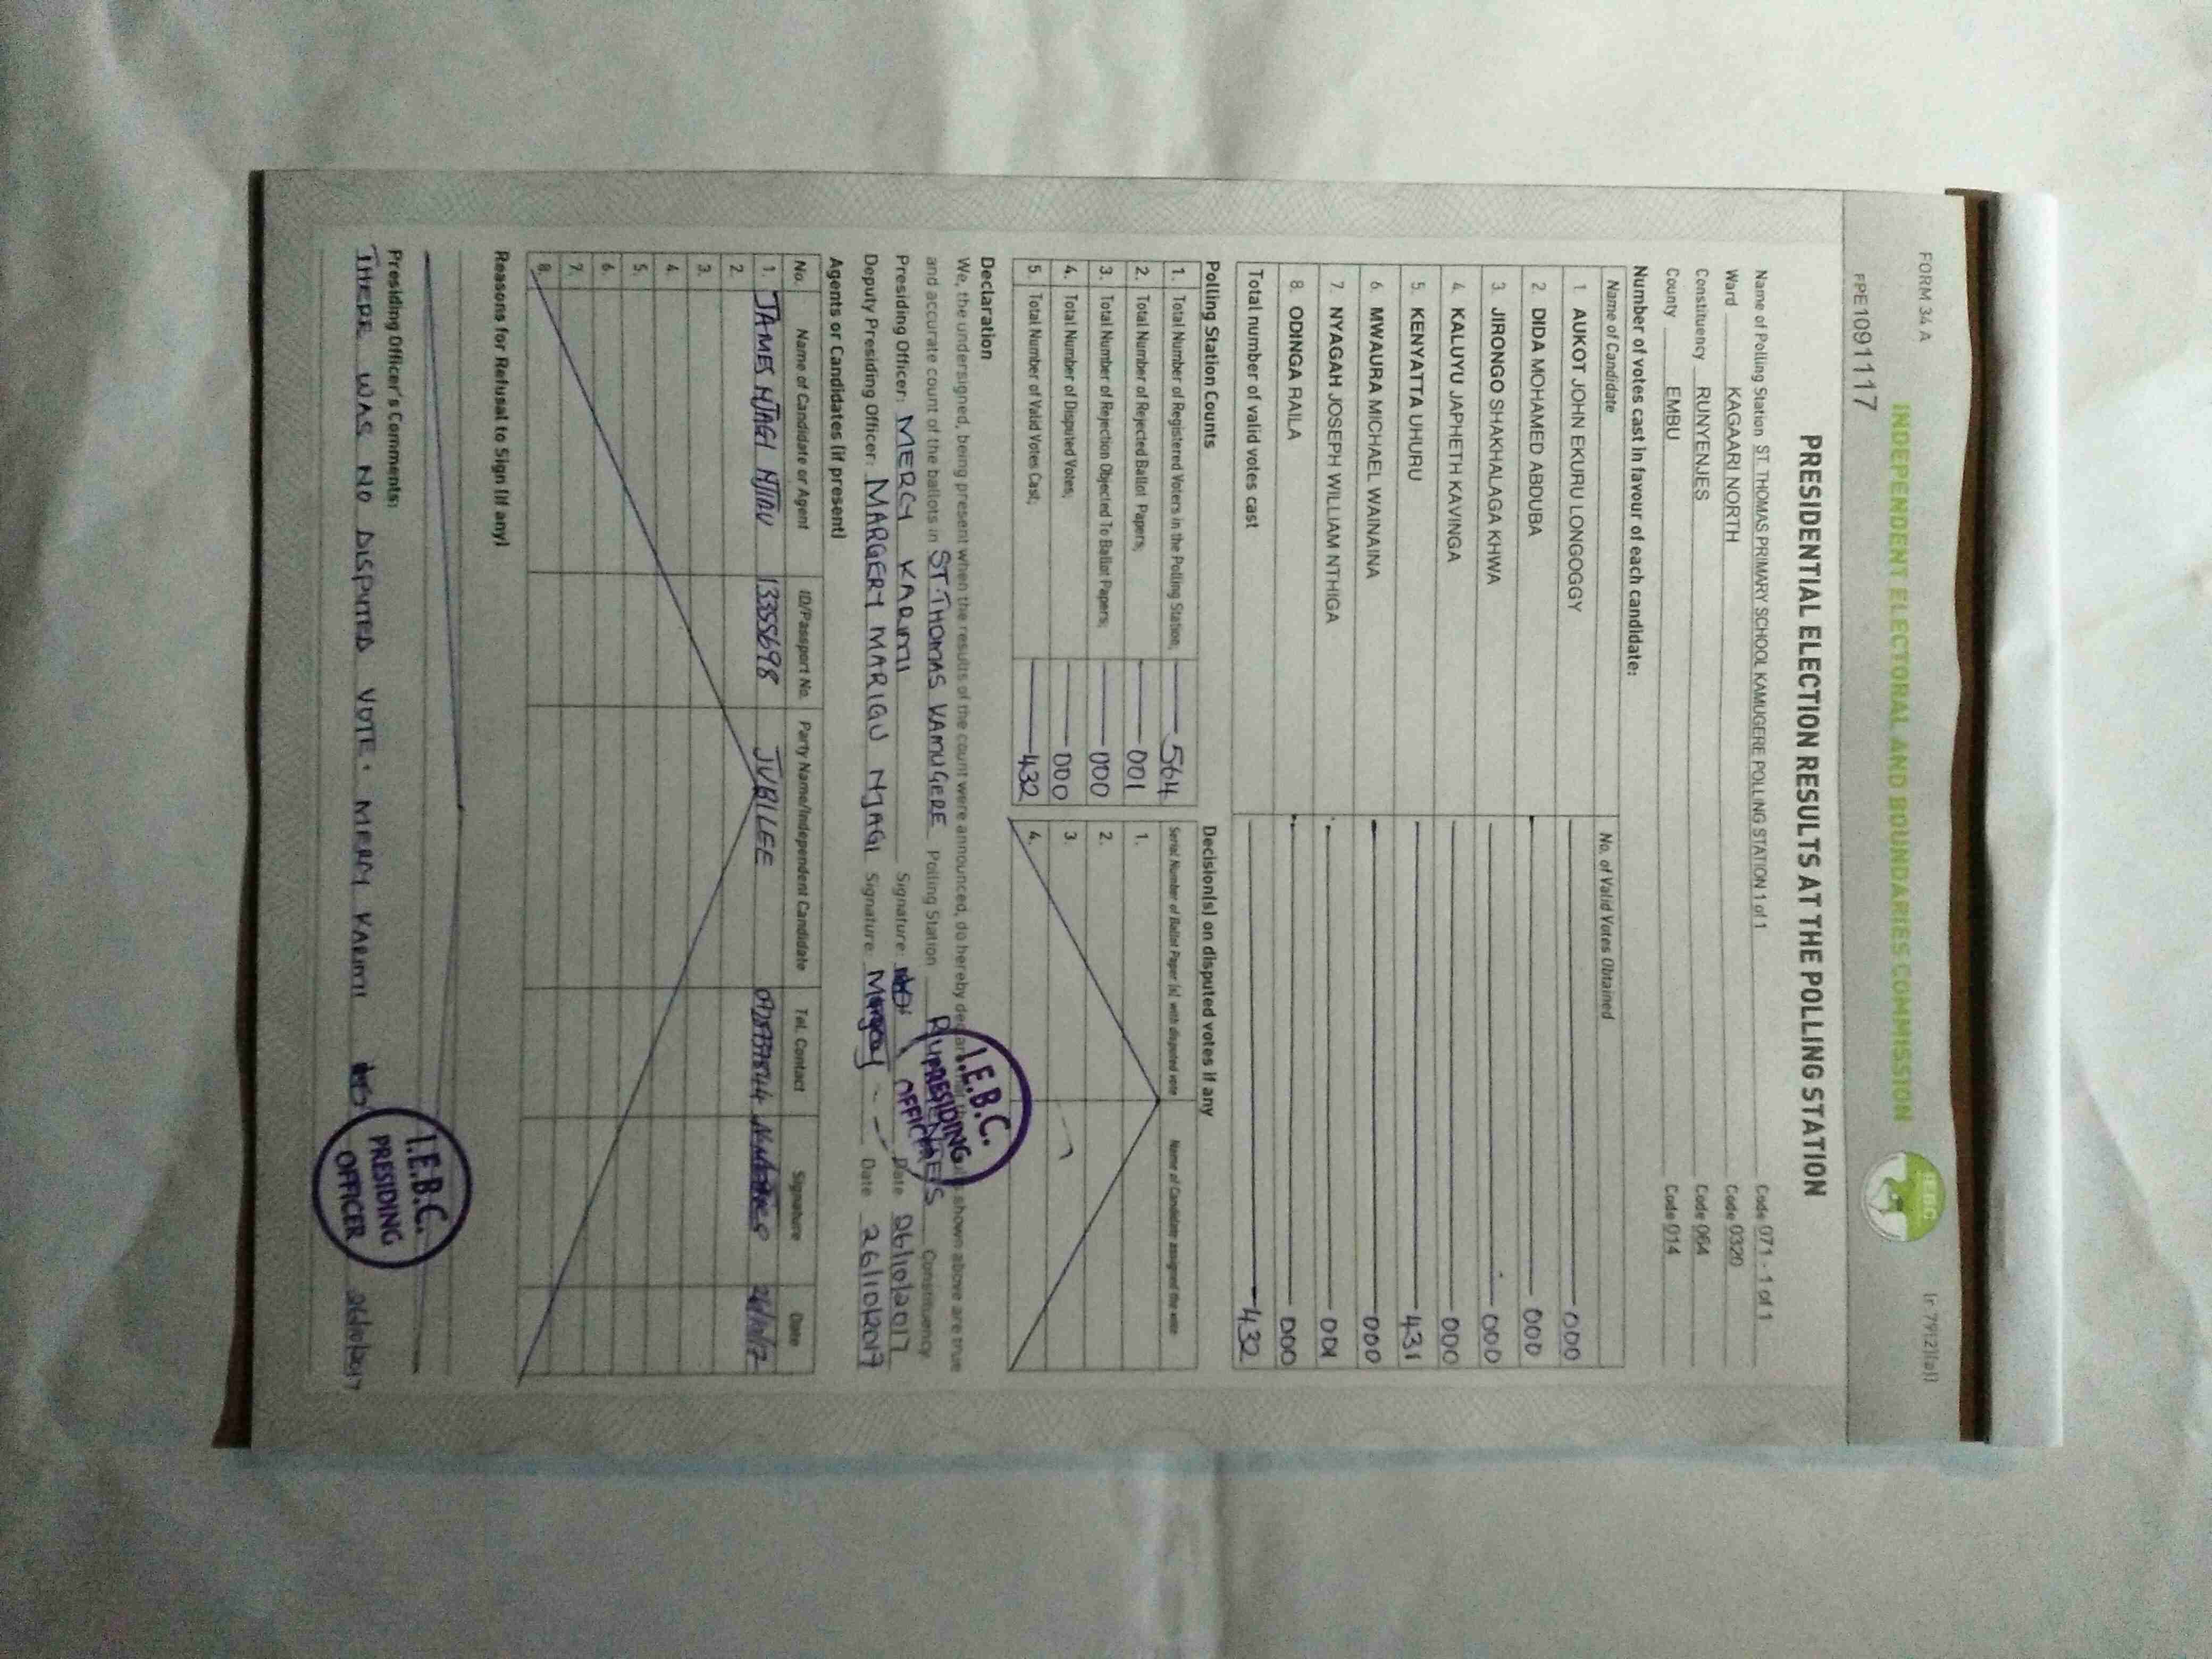 FORM 34 A
(r.79(2)(a))
INDEPENDENT ELECTORAL AND BOUNDARIES COMMISSION
IEBC
PPE1091117
PRESIDENTIAL ELECTION RESULTS AT THE POLLING STATION
Name of Polling Station ST. THOMAS PRIMARY SCHOOL KAMUGERE POLLING STATION 1 of 1 Code 071 - 1 of 1
Ward KAGAARI NORTH Code 0320
Constituency RUNYENJES Code 064
County EMBU Code 014
Number of votes cast in favour of each candidate:
Name of Candidate No. of Valid Votes Obtained
1. AUKOT JOHN EKURU LONGOGGY 000
2. DIDA MOHAMED ABDUBA 000
3. JIRONGO SHAKHALAGA KHWA 000
4. KALUYU JAPHETH KAVINGA 000
5. KENYATTA UHURU 431
6. MWAURA MICHAEL WAINAINA 000
7. NYAGAH JOSEPH WILLIAM NTHIGA 001
8. ODINGA RAILA 000
Total number of valid votes cast 432
Polling Station Counts
1. Total Number of Registered Voters in the Polling Station; 564
2. Total Number of Rejected Ballot Papers; 001
3. Total Number of Rejection Objected To Ballot Papers; 000
4. Total Number of Disputed Votes; 000
5. Total Number of Valid Votes Cast; 432
Decision(s) on disputed votes if any
Serial Number of Ballot Paper (s) with disputed vote Name of Candidate assigned the vote
1.
2.
3.
4.
Declaration
We, the undersigned, being present when the results of the count were announced, do hereby declare shown above are true
and accurate count of the ballots in ST. THOMAS KAMUGERE Polling Station Constituency
Presiding Officer: MERCY KARIMI Signature: Date 26/10/2017
Deputy Presiding Officer: MARGERY MARIGU NJAGI Signature: Date 26/10/2017
I.E.B.C.
PRESIDING
OFFICER
Agents or Candidates (if present)
No. Name of Candidate or Agent ID/Passport No. Party Name/Independent Candidate Tel. Contact Signature Date
1. JAMES NJAGI 13355698 JUBILEE 26/10/17
2.
3.
4.
5.
6.
7.
8.
Reasons for Refusal to Sign (if any)
Presiding Officer's Comments:
THERE WAS NO DISPUTED VOTE. KARIMI 26/10/2017
I.E.B.C.
PRESIDING
OFFICER